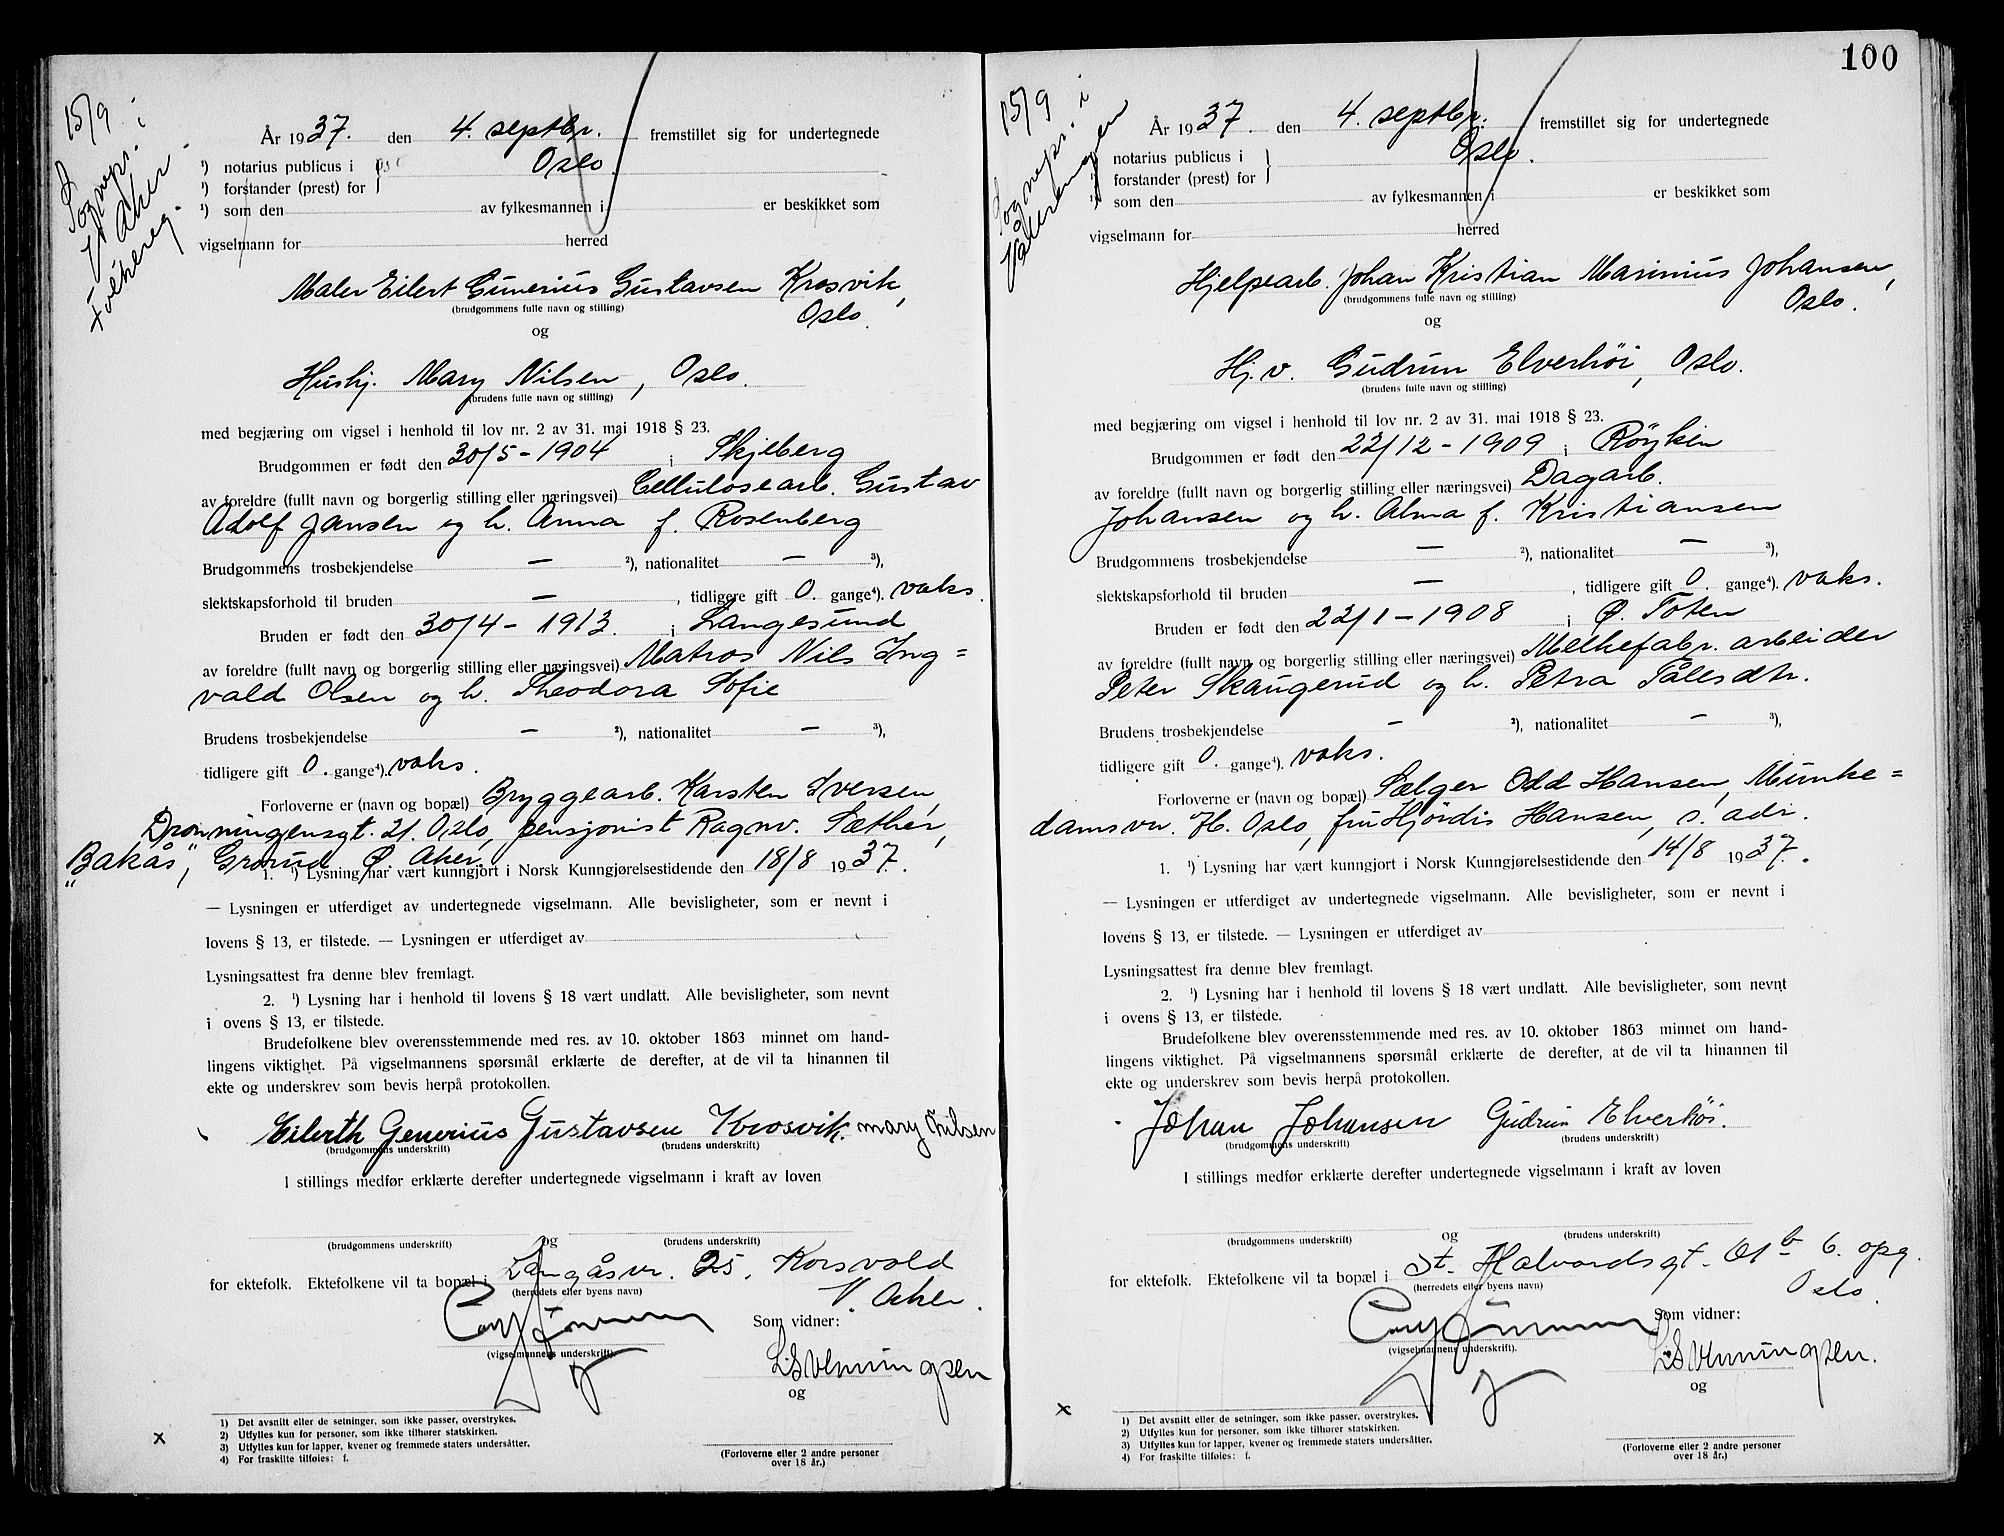 15/9
Sognepr. i
V. Aker.
År 1937. den 4. septbr. fremstillet sig for undertegnede
¹) notarius publicus i Oslo.
¹) forstander (prest) for
¹) som den av fylkesmannen i er beskikket som
vigselmann for herred
Maler Eilert Gunerius Gustavsen Krosvik,
(brudgommens fulle navn og stilling)
Oslo.
og
Hushj. Mary Nilsen, Oslo.
(brudens fulle navn og stilling)
med begjæring om vigsel i henhold til lov nr. 2 av 31. mai 1918 § 23.
Brudgommen er født den 30/5 - 1904 i Skjeberg
av foreldre (fullt navn og borgerlig stilling eller næringsvei) Cellulosearb. Gustav
Adolf Jansen og h. Anna f. Rosenberg
Brudgommens trosbekjendelse — ²), nationalitet — ³),
slektskapsforhold til bruden — , tidligere gift 0. gange⁴). vaks.
Bruden er født den 30/4 - 1913. i Langesund
av foreldre (fullt navn og borgerlig stilling eller næringsvei) Matros Nils Ing=
vald Olsen og h. Theodora Sofie
Brudens trosbekjendelse — ²), nationalitet — ³),
tidligere gift 0. gange⁴). vaks.
Forloverne er (navn og bopæl) Bryggearb. Karsten Iversen,
Dronningensgt. 21. Oslo, pensjonist Ragnv. Sæther,
"Bakås", Grorud Ø. Aker.
1. ¹) Lysning har vært kunngjort i Norsk Kunngjørelsestidende den 18/8 1937.
— Lysningen er utferdiget av undertegnede vigselmann. Alle bevisligheter, som er nevnt i
lovens § 13, er tilstede. — Lysningen er utferdiget av
Lysningsattest fra denne blev fremlagt.
2. ¹) Lysning har i henhold til lovens § 18 vært undlatt. Alle bevisligheter, som nevnt
i ovens § 13, er tilstede.
Brudefolkene blev overensstemmende med res. av 10. oktober 1863 minnet om hand-
lingens viktighet. På vigselmannens spørsmål erklærte de derefter, at de vil ta hinannen til
ekte og underskrev som bevis herpå protokollen.
Eilerth Generius Gustavsen Krosvik. Mary Nilsen
(brudgommens underskrift) (brudens underskrift)
I stillings medfør erklærte derefter undertegnede vigselmann i kraft av loven
og
(brudgommens underskrift) (brudens underskrift)
for ektefolk. Ektefolkene vil ta bopæl i Langåsvr. 25, Korsvold
(herredets eller byens navn)
V. Aker.
Som vidner:
(vigselmannens underskrift).
L. S. Venningsen
og
1) Det avsnitt eller de setninger, som ikke passer, overstrykes.
2) Utfylles kun for personer, som ikke tilhører statskirken.
3) Utfylles kun for lapper, kvener og fremmede staters undersåtter.
4) For fraskilte tilføies: f.
(Forloverne eller 2 andre personer
over 18 år.)
x
100
15/9
Sognepr. i
År 1937. den 4. septbr. fremstillet sig for undertegnede
notarius publicus i Oslo.
forstander (prest) for
¹) som den av fylkesmannen i er beskikket som
vigselmann for herred
Hjelpearb. Johan Kristian Marinius Johansen,
(brudgommens fulle navn og stilling)
Oslo.
og
Hj.v. Gudrun Elverhöi, Oslo.
(brudens fulle navn og stilling)
med begjæring om vigsel i henhold til lov nr. 2 av 31. mai 1918 § 23.
Brudgommen er født den 22/12 - 1909 i Röyken
av foreldre (fullt navn og borgerlig stilling eller næringsvei) Dagarb.
Johansen og h. Alma f. Kristiansen
Brudgommens trosbekjendelse — ²), nationalitet — ³),
slektskapsforhold til bruden — , tidligere gift 0. gange⁴). vaks.
Bruden er født den 22/1 - 1908 i Ø. Toten
av foreldre (fullt navn og borgerlig stilling eller næringsvei) Melkefabr. arbeider
Peter Skaugerud og h. Petra Pålesdtr.
Brudens trosbekjendelse — ²), nationalitet — ³),
tidligere gift 0. gange⁴). vaks.
Forloverne er (navn og bopæl) Sælger Odd Hansen, Munke=
damsvn. Oslo, fru Hjördis Hansen, s. adr.
1. ¹) Lysning har vært kunngjort i Norsk Kunngjørelsestidende den 14/8 1937.
— Lysningen er utferdiget av undertegnede vigselmann. Alle bevisligheter, som er nevnt i
lovens § 13, er tilstede. — Lysningen er utferdiget av
Lysningsattest fra denne blev fremlagt.
2. ¹) Lysning har i henhold til lovens § 18 vært undlatt. Alle bevisligheter, som nevnt
i ovens § 13, er tilstede.
Brudefolkene blev overensstemmende med res. av 10. oktober 1863 minnet om hand-
lingens viktighet. På vigselmannens spørsmål erklærte de derefter, at de vil ta hinannen til
ekte og underskrev som bevis herpå protokollen.
Johan Johansen Gudrun Elverhöi.
(brudgommens underskrift) (brudens underskrift)
I stillings medfør erklærte derefter undertegnede vigselmann i kraft av loven
og
(brudgommens underskrift) (brudens underskrift)
for ektefolk. Ektefolkene vil ta bopæl i St. Halvardsgt. 6. opg.
(herredets eller byens navn)
Oslo.
Som vidner:
(vigselmannens underskrift).
L. S. Venningsen.
og
1) Det avsnitt eller de setninger, som ikke passer, overstrykes.
2) Utfylles kun for personer, som ikke tilhører statskirken.
3) Utfylles kun for lapper, kvener og fremmede staters undersåtter.
4) For fraskilte tilføies: f.
(Forloverne eller 2 andre personer
over 18 år.)
x